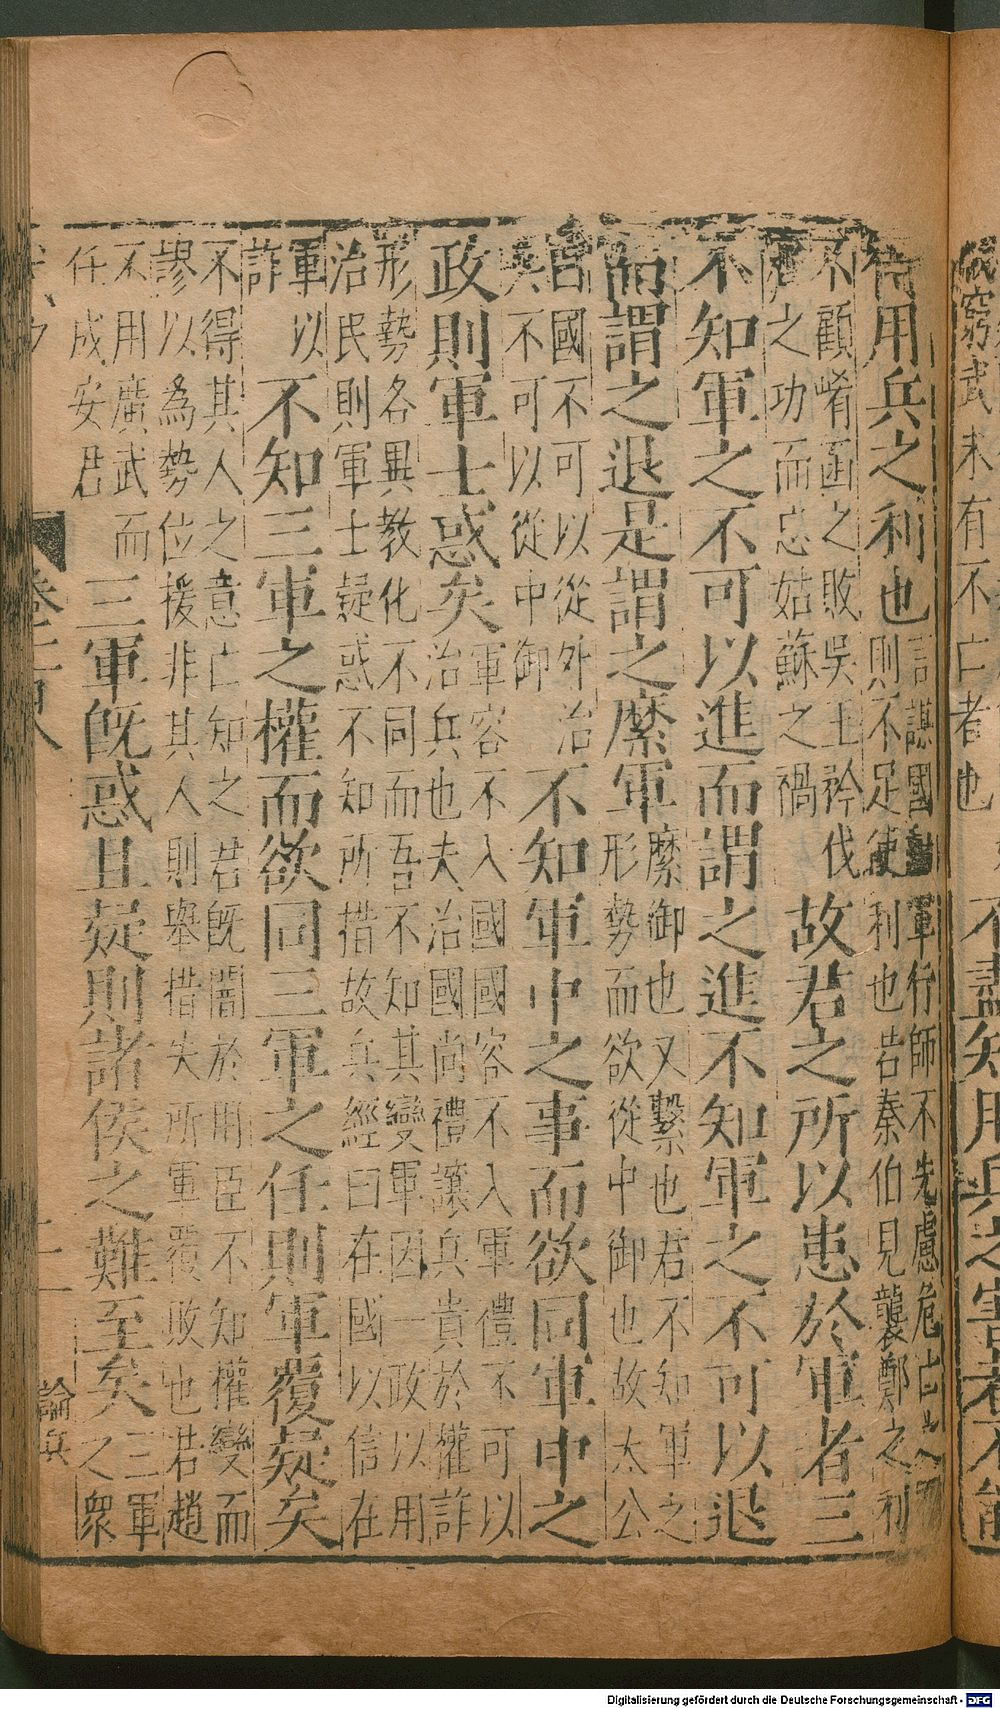 窮武未有不亡者也 不盡知用兵之害者不能
得用兵之利也 言謀國動軍行師不先慮危亡之
則不足使利也若秦伯見襲鄭之利
不顧崤函之敗吳王矜伐
之功而忘姑蘇之禍
故君之所以患於軍者三
不知軍之不可以進而謂之進不知軍之不可以退
而謂之退是謂之縻軍 縻御也又繫也君不知軍之
形勢而欲從中御也故太公
曰國不可以從外治
兵不可以從中御
不知軍中之事而欲同軍中之
政則軍士惑矣 軍容不入國國容不入軍禮不可以
治兵也夫治國尚禮讓兵貴於權詐
形勢各異教化不同而吾不知其變軍因一政以用
治民則軍士疑惑不知所措故兵經曰在國以信在
軍以
詐
不知三軍之權而欲同三軍之任則軍覆疑矣
不得其人之意亡知之君既闇於用臣不知權變而
謬以為勢位援非其人則舉措失所軍覆敗也若趙
不用廣武而
任成安君
三軍既惑且疑則諸侯之難至矣 三軍
之衆
論兵
Digitalisierung gefördert durch die Deutsche Forschungsgemeinschaft - DFG